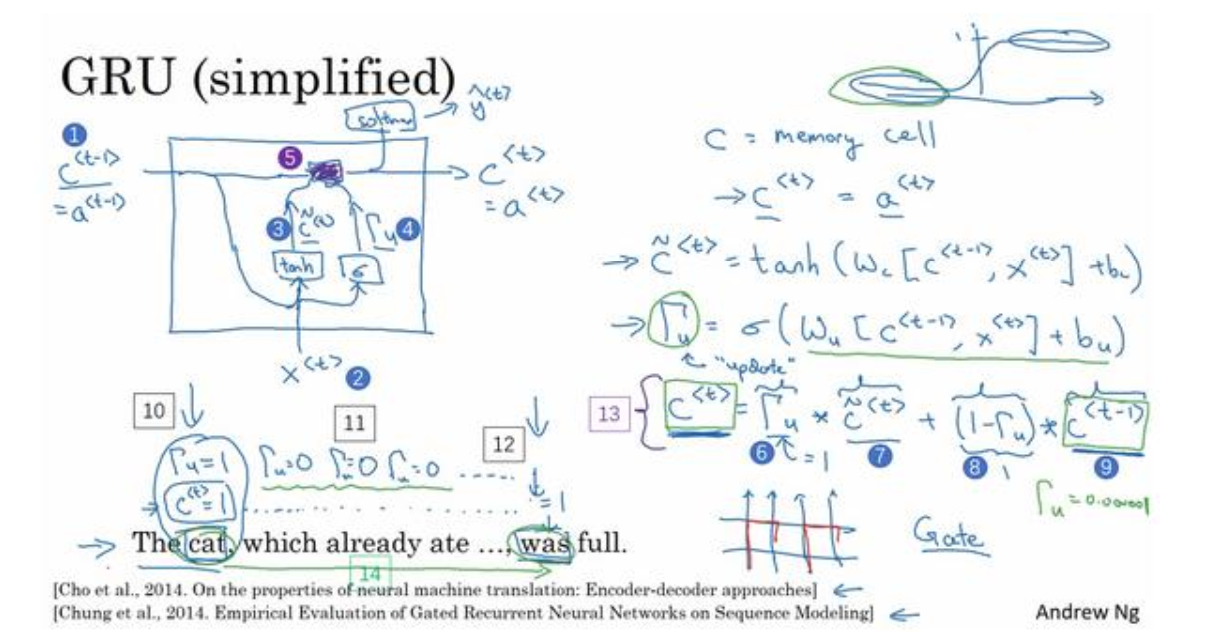 GRU (simplified)
softmax → ŷ^<t>
1
c^<t-1>
= a^<t-1>
5
c^<t>
= a^<t>
3 c̃^<t> Γu 4
tanh σ
x^<t> 2
1
C = memory cell
→ c^<t> = a^<t>
→ c̃^<t> = tanh (Wc [c^<t-1>, x^<t>] + bc)
→ Γu = σ (Wu [c^<t-1>, x^<t>] + bu)
"update"
13 c^<t> = Γu * c̃^<t> + (1-Γu) * c^<t-1>
6 = 1 7 8 1 9
Γu = 0.000001
Gate
10 11 12
Γu=1 Γu=0 Γu=0 Γu=0 .....
c^<t>=1 ............ =1
→ The cat, which already ate ..., was full.
14
[Cho et al., 2014. On the properties of neural machine translation: Encoder-decoder approaches] ←
[Chung et al., 2014. Empirical Evaluation of Gated Recurrent Neural Networks on Sequence Modeling] ←
Andrew Ng